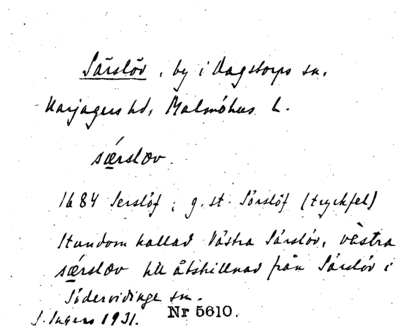 Särslöv, by i Dagstorps sn,
Harjagers hd, Malmöhus l.
særslœv.
1684 Serslöf, g. st. Sörslöf (tryckfel)
Stundom kallad Västra Särslöv, vèstra
særslœv till åtskillnad från Särslöv i
Södervidinge sn.
S. Ingers 1931. Nr 5610.